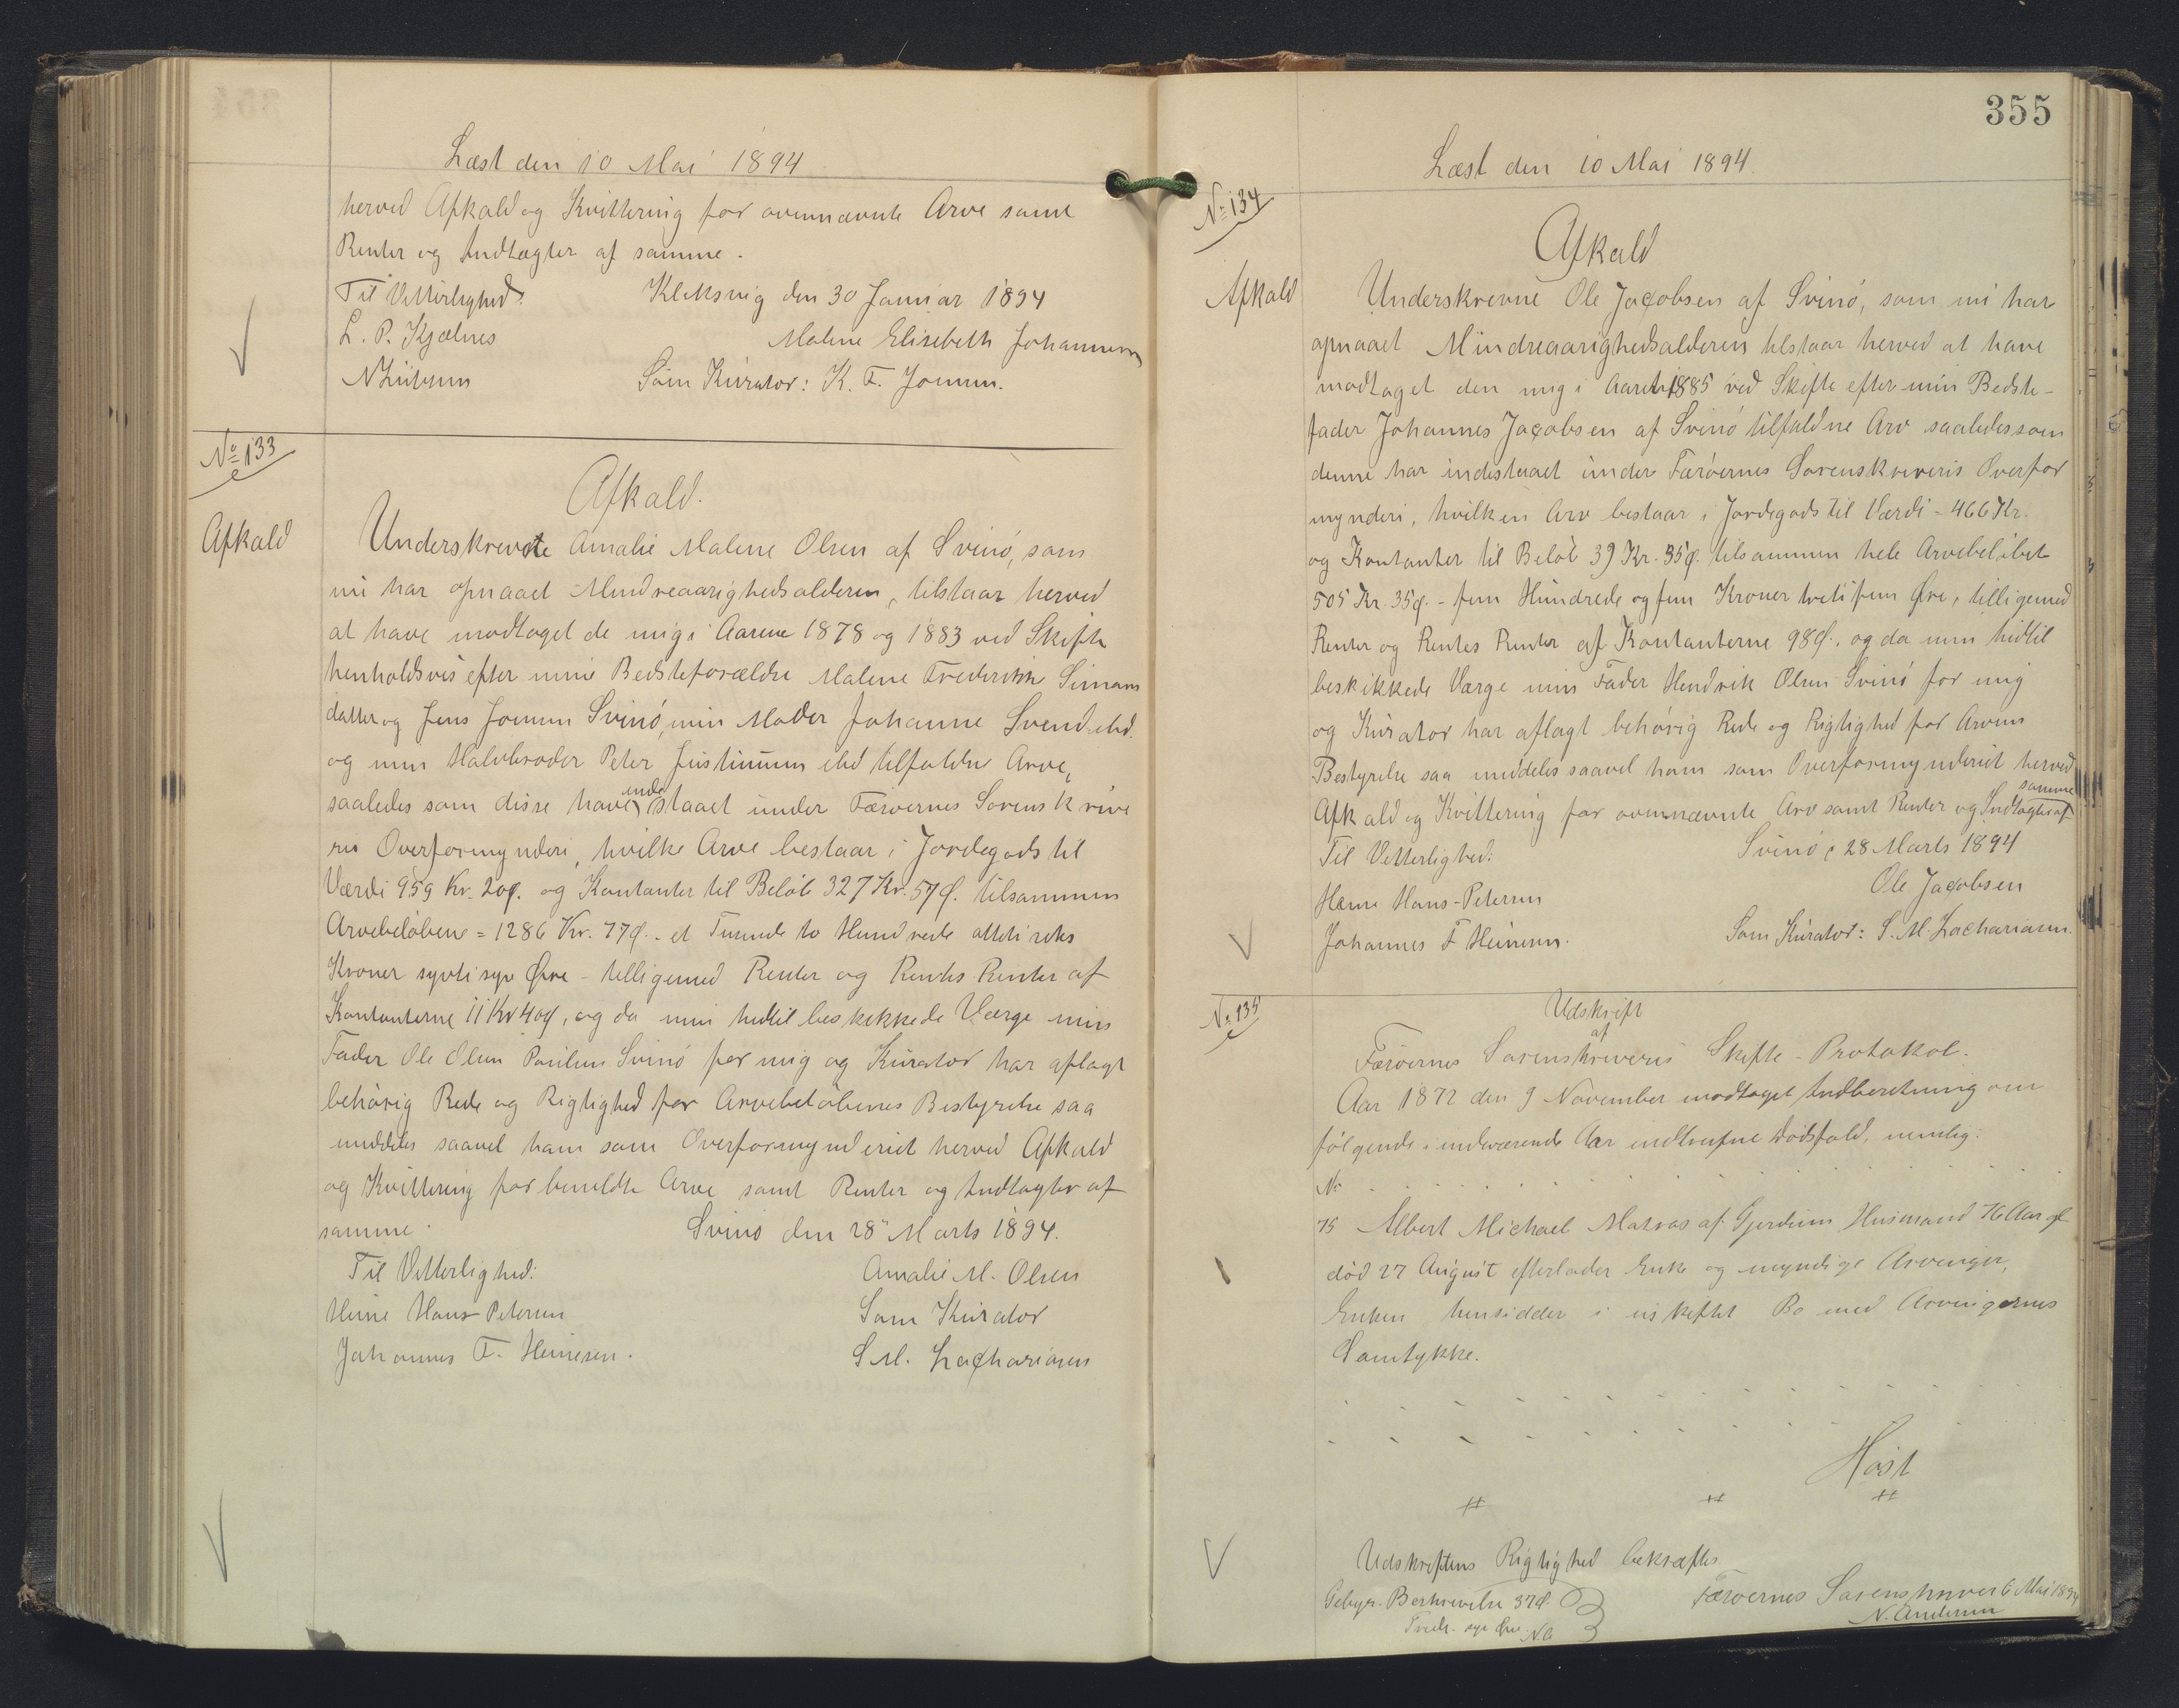 Læst den 10 Mai 1894
herved Afkald og Kvittering for ovennævnte Arve samt
Renter og Indtægter af samme.
Til Vitterlighed. Kleksvig den 30 Januar 1894
L. P. Kjølnes Malene Elisebeth Johannesen
Som Kurator: K. F. Joensen.
No 133
Afkald.
Afkald Underskrevete Amalie Malene Olsen af Svinö, som
nu har opnaaet Mindreaarighedsalderen, tilstaar herved
at have modtaget de mig i Aarene 1878 og 1883 ved Skifte
henholdsvis efter mine Bedsteforældre Malene Frederikke Simons
datter og Jens Joensen Svinö, min Moder Johanne Svendsdd.
og min Halvbroder Peter Justinussen ibd tilfaldne Arve,
saaledes som disse have indestaaet under Færöernes Sorenskrive
ris Overformynderi, hvilke Arve bestaar i Jordegods til
Værdi 959 Kr. 20ø. og Kontanter til Beløb 327 Kr. 57ø. tilsammen
Arvebeløbene = 1286 Kr. 77ø. - et Tusende to Hundrede ottetiseks
Kroner syvtisyv Øre - tilligemed Renter og Rentes Renter af
Kontanterne 11 Kr 40ø, og da min hidtil beskikkede Værge min
Fader Ole Olsen Poulsen Svinö for mig og Kurator har aflagt
behörig Rede og Rigtighed for Arvebelöbenes Bestyrelse saa
meddeles saavel ham som Overformynderiet herved Afkald
og Kvittering for bemeldte Arve samt Renter og Indtægter af
samme. Svinö den 28 Marts 1894.
Til Vitterlighed: Amalie M. Olsen
Heine Hans-Petersen Som Kurator
Johannes F. Heinesen. S.M. Zachariasen
355
Læst den 10 Mai 1894.
No 134
Afkald
Afkald Underskrevne Ole Jacobsen af Svinö, som nu har
opnaaet Mindreaarighedsalderen tilstaar herved at have
modtaget den mig i Aaret 1885 ved Skifte efter min Bedste-
fader Johannes Jacobsen af Svinö tilfaldne Arv saaledes som
denne har indestaaet under Færöernes Sorenskriveris Overfor
mynderi, hvilken Arv bestaar i Jordegods til Værdi - 466 Kr.
og Kontanter til Belöb 39 Kr. 35ø. tilsammen hele Arvebelöbet
505 Kr. 35ø. - fem Hundrede og fem Kroner tretifem Øre, tilligemed
Renter og Rentes Renter af Kontanterne 98Ø. og da min hidtil
beskikkede Værge min Fader Hendrik Olsen Svinö for mig
og Kurator har aflagt behörig Rede og Rigtighed for Arvens
Bestyrelse saa meddeles saavel ham som Overformynderiet herved
Afkald og Kvittering for ovennævnte Arv samt Renter og Indtægter af samme
Til Vitterlighed: Svinö 28 Marts 1894
Hans-Petersen Ole Jacobsen
Johannes F Heinesen. Som Kurator: S. M. Zachariasen.
No 135
Udskrift
af
Færöernes Sorenskriveris Skifte-Protokol.
Aar 1872 den 9 November modtaget Indberetning om
fölgende i indeværende Aar indtrufne Dödsfald, nemlig:
No
75 Albert Michael Matras af Gjerdum Husmand 76 Aar gl
död 27 August efterlader Enke og myndige Arvinger,
Enken hensidder i uskiftet Bo med Arvingernes
Samtykke.
Höst
Udskriftens Rigtighed bekræftes.
Gebyr. Beskrivelse 37Ø. Færöernes Sorenskriveri 6 Mai 1894
Tredv. syv Øre N.A. N. Andersen